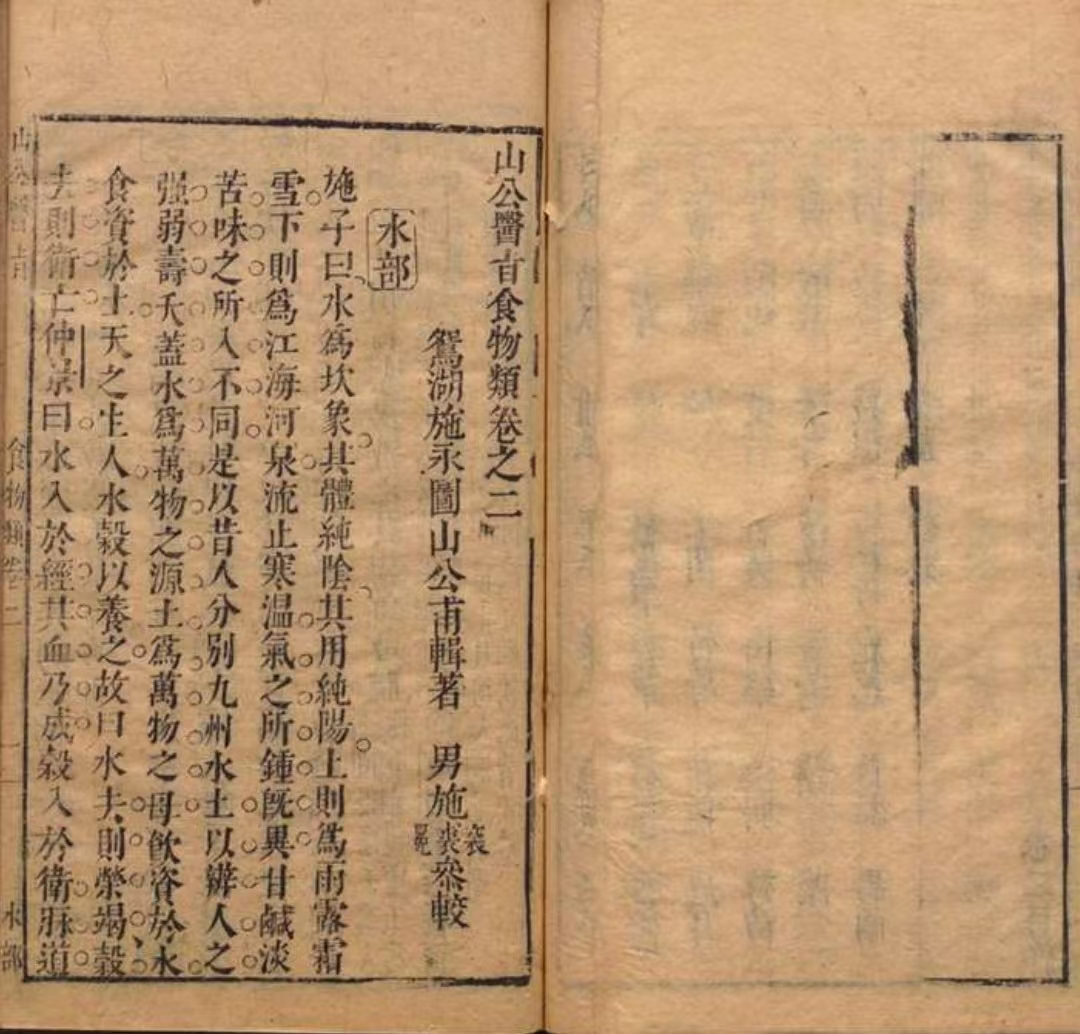 山公醫旨食物類卷之二
鴛湖施永圖山公甫輯著　男施 參較
水部
施子曰水為坎象其體純陰其用純陽上則爲雨露霜
雪下則爲江海河泉流止寒温氣之所鍾旣異甘鹹淡
苦味之所入不同是以昔人分别九州水土以辨人之
强弱壽夭蓋水爲萬物之源土爲萬物之母飮資於水
食資於土天之生人水穀以養之故曰水去則榮竭穀
去則衛亡仲景曰水入於經其血乃成穀入於衛脈道
山公醫旨
食物類卷二
一
水部